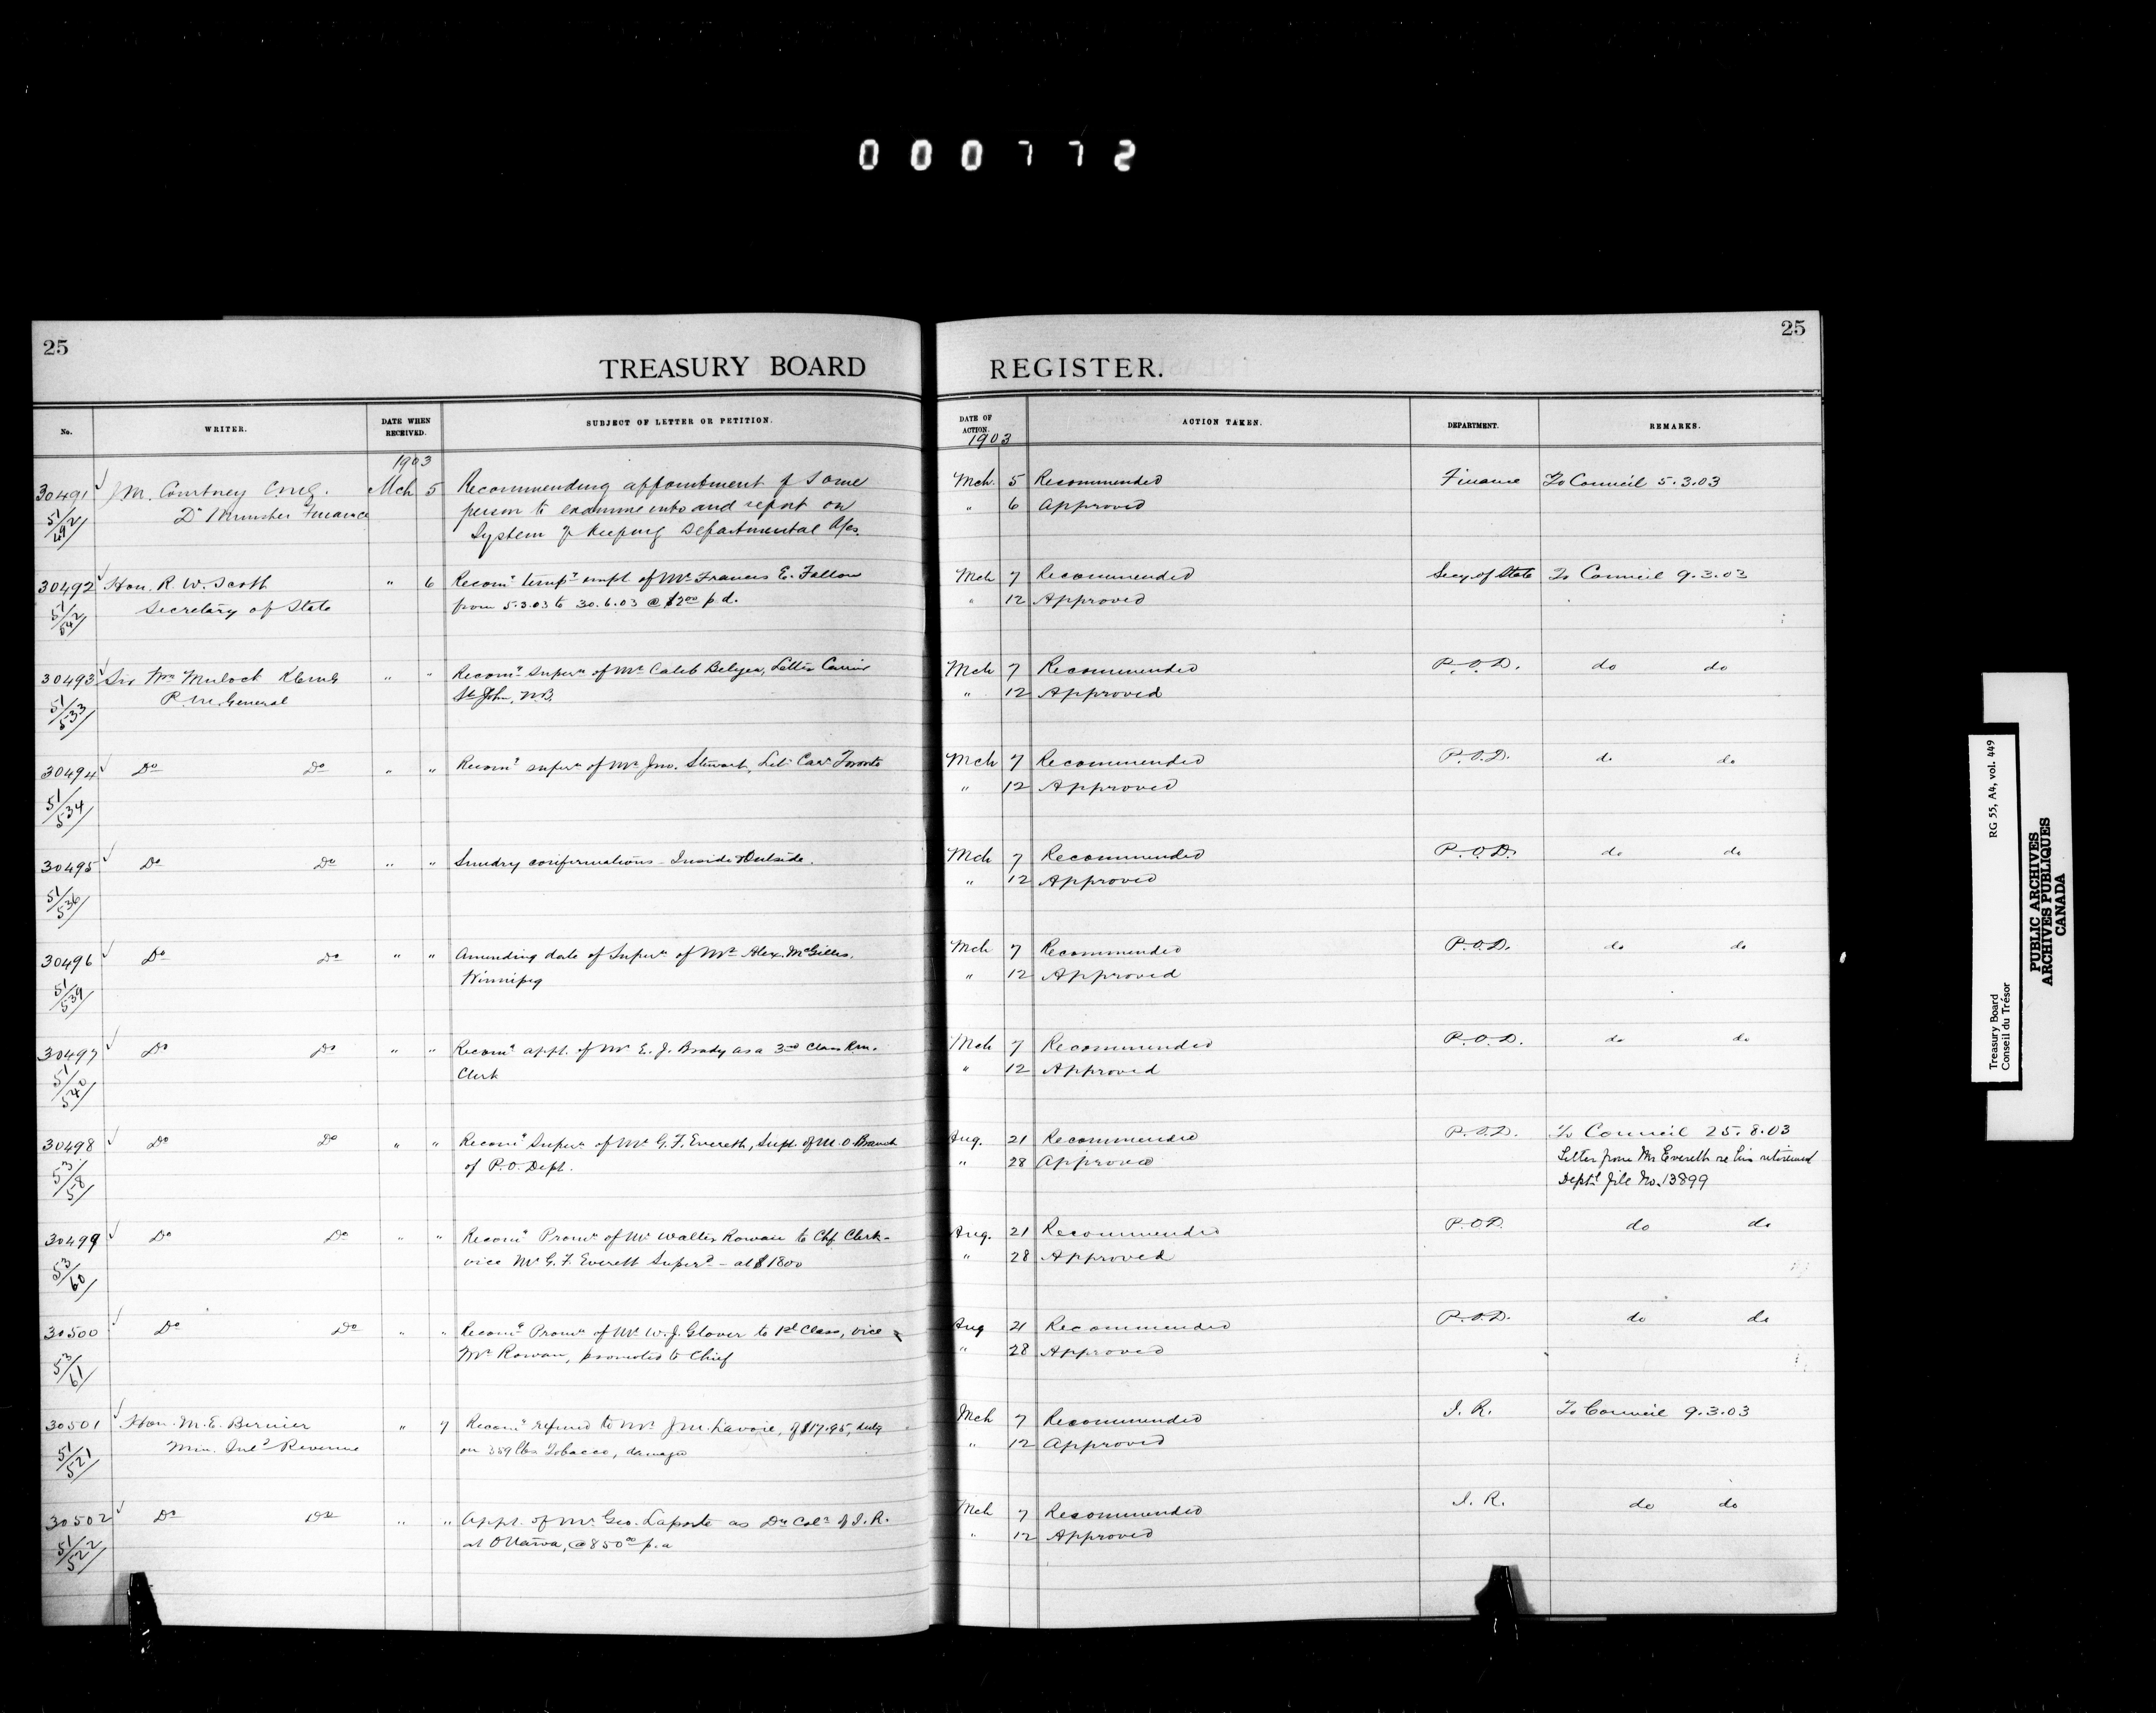 000772
25
25
TREASURY BOARD REGISTER.
No. WRITER. DATE WHEN RECEIVED. SUBJECT OF LETTER OR PETITION. DATE OF ACTION. ACTION TAKEN. DEPARTMENT. REMARKS.
1903 1903
30491 J.M. Courtney C.M.G. Mch 5 Recommending appointment of some Mch. 5 Recommended Finance To Council 5.3.03
51/492 Dy Minister Finance person to examine into and report on " 6 Approved
System of Keeping Departmental A/cs.
30492 Hon. R. W. Scott " 6 Recomg tempy empt of Mr Francis E. Fallon Mch 7 Recommended Secy. of State To Council 9.3.03
51/542 Secretary of State from 5.3.03 to 30.6.03 @ $2.00 p.d. " 12 Approved
30493 Sir Wm Mulock KCMG " " Recomg Supern of Mr Caleb Belyea, Letter Carrier Mch 7 Recommended P.O.D. do do
51/533 P.M. General St John, N.B. " 12 Approved
30494 Do Do " " Recomg supern of Mr Jno. Stewart, Let. Carr Toronto Mch 7 Recommended P.O.D. do do
51/534 " 12 Approved
30495 Do Do " " Sundry confirmations - Inside & Outside. Mch 7 Recommended P.O.D. do do
51/536 " 12 Approved
30496 Do Do " " Amending date of Supern of Mr Alex. McGillis, Mch 7 Recommended P.O.D. do do
51/539 Winnipeg " 12 Approved
30497 Do Do " " Recomg appt. of Mr E. J. Brady as a 3rd Class Rm. Mch 7 Recommended P.O.D. do do
51/540 Clerk " 12 Approved
30498 Do Do " " Recomg Supern of Mr G. F. Everett, Supt. of M.O. Branch Aug. 21 Recommended P.O.D. To Council 25.8.03
53/58 of P.O. Dept. " 28 Approved Letter from Mr Everett re his retirement
Deptl file No. 13899
30499 Do Do " " Recomg Promn of Mr Walter Rowan to Chf. Clerk- Aug. 21 Recommended P.O.D. do do
53/60 vice Mr G. F. Everett Superd - at $1800 " 28 Approved
30500 Do Do " " Recomg Promn of Mr W. J. Glover to 1st Class, vice Aug 21 Recommended P.O.D. do do
53/61 Mr Rowan, promoted to Chief " 28 Approved
30501 Hon. M. E. Bernier " 7 Recomg refund to Mr J.M. Lavoie, of $17.95, duty Mch 7 Recommended I. R. To Council 9.3.03
51/521 Min. Inld Revenue on 359 lbs Tobacco, damaged " 12 Approved
30502 Do Do " " Appt. of Mr Geo. Laporte as Dy Colr of I.R. Mch 7 Recommended I. R. do do
51/522 at Ottawa, @ 850.00 p.a " 12 Approved
Treasury Board RG 55, A4, vol. 449
Conseil du Trésor
PUBLIC ARCHIVES
ARCHIVES PUBLIQUES
CANADA